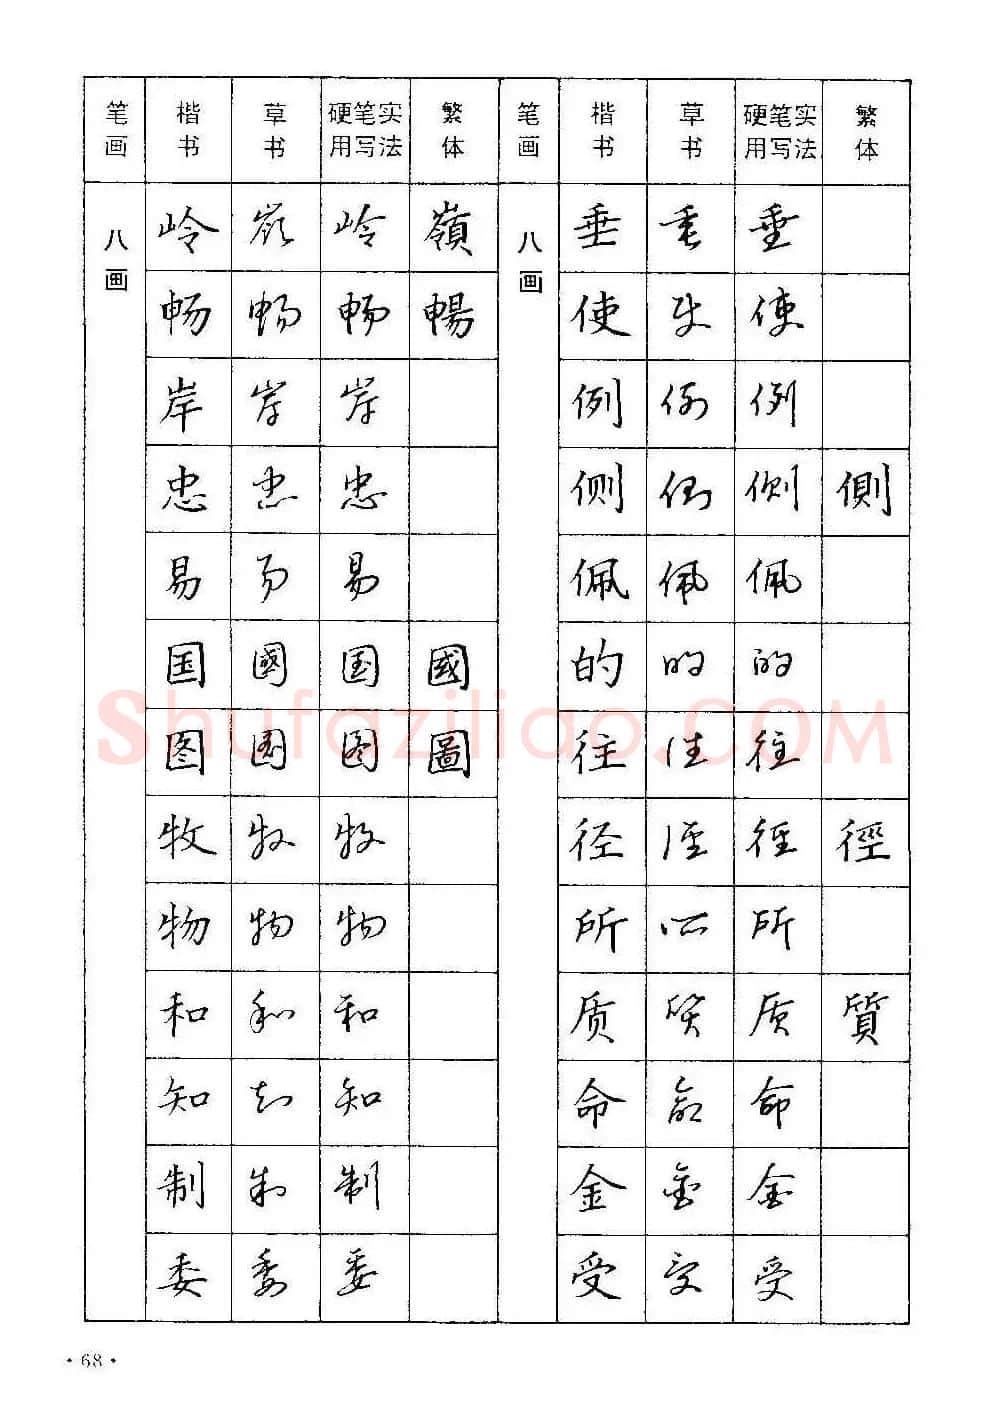 笔画 楷书 草书 硬笔实用写法 繁体 笔画 楷书 草书 硬笔实用写法 繁体
八画 岭 岭 岭 嶺 八画 垂 垂 垂
畅 畅 畅 暢 使 使 使
岸 岸 岸 例 例 例
忠 忠 忠 侧 侧 侧 側
易 易 易 佩 佩 佩
国 國 国 國 的 的 的
图 图 图 圖 往 往 往
牧 牧 牧 径 径 径 徑
物 物 物 所 所 所
和 和 和 质 质 质 質
知 知 知 命 命 命
制 制 制 金 金 金
委 委 委 受 受 受
Shufaziliao.COM
·68·